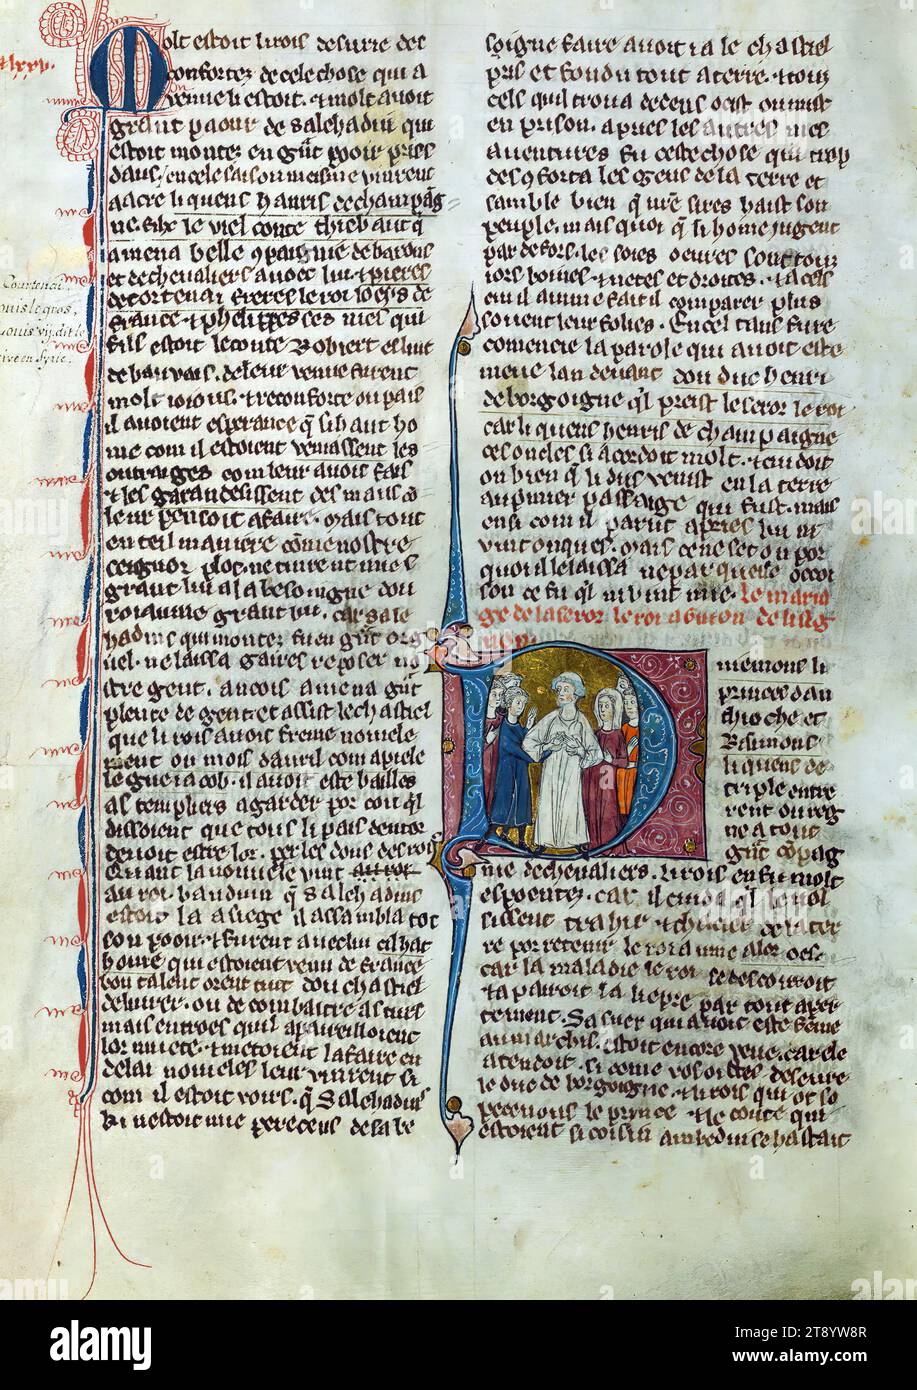 Molt estoit li rois desurie des
confortez de cele chose qui a
venue li estoit. ⁊ molt avoit
grant paour de salehadin qui
estoit montez en gnt pooir pres
daus/ en cele saison meisme vinrent
a acre li quens hanris de champaig
ne. filz le viel conte thiebaut q̄
amena belle 9paignie de barons
et de chevaliers avoec lui. ⁊ pieres
de cortenai freres le roi loeys de
france. ⁊ phelippes ses niez qui
fils estoit le conte Robiert ⁊ eslut
de bauvais. de leur venue furent
molt ioious. ⁊ reconforte ou pais
il avoient esperance q̄ si haut ho
me com il estoient venıassent les
outraiges com leur avoit fais
⁊ les garandesissent des maus co̅
leur pensoit a faire. mais tout
en teil maniere co̅me nostre
seignor plot. ne tinrent mie
grant liu a la besoingne dou
roiaume grant liu. car sale
hadins qui montez fu en gnt org
uel. ne laissa gaires reposer no
stre gent. ancois amena gnt
plente de gent. et assist le chastiel
que li rois avoit ferme novele
ment ou mois davril com apiele
le gue iacob. il avoit este bailles
as templiers a garder por con qͥl
dissoient que tous li pais dentor
devoit estre lor. per les dons des rois
Quant la novele vint au roi
au roi. bauduin q̄ salehadins
estoit la a siege il assambla tot
son pooir. ⁊ furent avec lui cil hat
home qui estoient venu de france
bon talent orent tuit dou chastiel
delivrer. ou de combatre as turs
mais entroes quil apareilloient
lor muete. ⁊ metoient lafaire en
delai noveles leur vinrent si
com il estoit voirs. q̄ Salehadins
ki nestoit mie pereceus de sa be
Courtenai
ouis le gros,
Louis vij. dit le
ive en Syrie.
soigne faire avoit ia le chastiel
pris et fondu tout a terre. ⁊ tous
cels quil trova dedens ocist ou mist
en prison. apries les autres mes
aventures fu ceste chose qui trop
des9forta les gens de la terre et
samble bien q̄ nr̄e sires haist son
peuple. mais quoi q̄ li home iugent
par defors. les soies oevres sont tou
iors bonnes. ⁊ netes et droites. ⁊ a cels
em il aimme fait il comparer plus
sovent leur folies. En cel tans fu re
comencie la parole qui avoit este
mene lan devant dou duc henri
de borgoigne qͥl preist le seror le roi
car li quens henris de champaigne
ces oncles si acordoit molt. ⁊ cuidoit
on bien q̄ li dus venist en la terre
au pmier passaige qui fust. mais
ensi com il parut apries lui ni
vint onques. mais ce ne set on por
quoi il le laissa ne par quele occoi
son ce fu qͥl ni vint mie. le maria
ge de la seror le roi a guion de lusig
non.
Buiemons li
princes dan
thioche et
Raimons
li quens de
triple entre
rent ou reg
ne a tout
gnt co̅paig
nie de chevaliers. li rois en fu molt
espoentez. car il cuida qͥl le vol
sissent trahir ⁊ chacier de la ter
re por retenir le roiaume a lor oes.
car la maladie le roi se descovroit
⁊ aparoit la liepre par tout aper
tement. Sa suer qui avoit este feme
au marchis. estoit encore veve. car ele
atendoit. si come vos oistes deseure
le duc de borgoigne. ⁊ li rois qui ot so
peconous le prince. ⁊ le conte qui
estoient si cosin ambedui se hastait
alamy
Image ID: 2T8YW8R
www.alamy.com